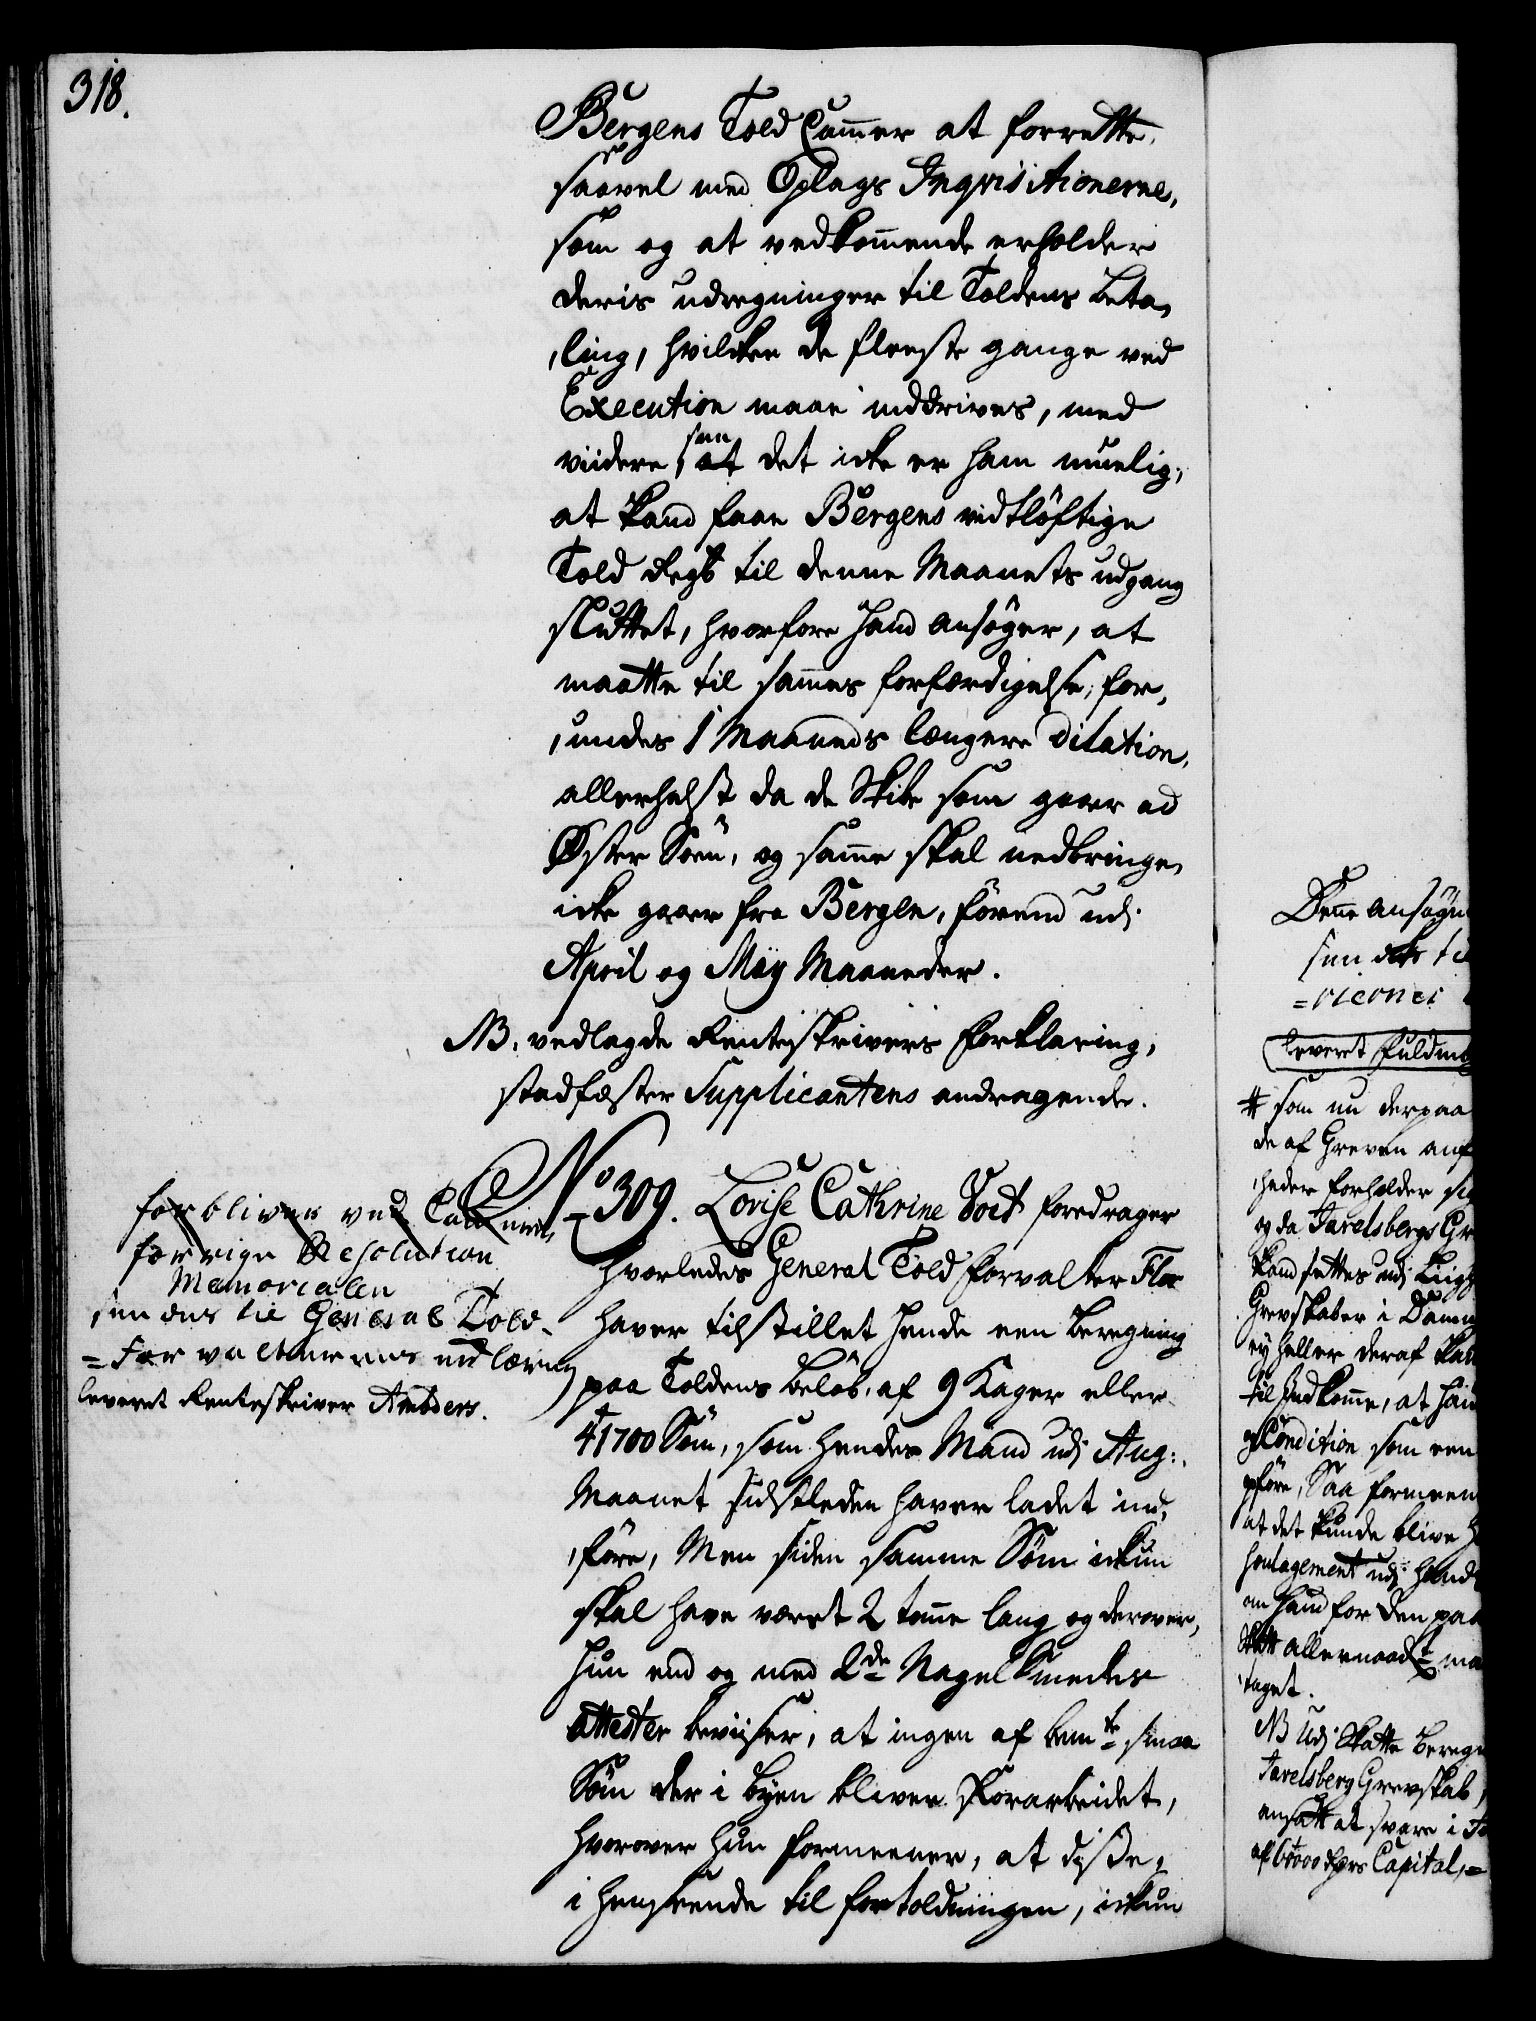 318.
Bergens Told Cammer at forrette,
saavel med Oplags Inqvisitionerne,
som og at vedkommende erholder
deris udregninger til Toldens beta,
,ling, hvilcken de fleeste gange ved
Execution maae inddrives, med
viidere saa at det icke er ham muelig,
at kand faae Bergens vidtløftige
Told Regsk: til denne Maanets udgang
sluttet, hvorfore hand ansøger, at
maatte til sammes forfærdigelse, for,
,undes 1 Maaneds længere Dilation,
allerhelst da de Skibe som gaaer ad
Øster Søen, og samme skal nedbringe,
icke gaaer fra Bergen, førend udj
April og Maÿ Maaneder.
NB. vedlagde Renteskrivers forklaring,
stadfæster Supplicantens andragende.
No 309. Lovise Cathrine Voet foredrager
hvorledes General Told forvalter Flor
haver tilstillet hende een beregning
paa Toldens beløb, af 9 Kager eller
41700 Søm, som hendes Mand udj Aug:
Maanet sidstleden haver ladet ind,
,føre, Men siden samme Søm ickun
skal have været 2 tomme lang og derover,
hun end og med 2de Nagel Smedes
attester beviiser, at ingen af bemte smaa
Søm der i byen bliver forarbeidet,
hvorover hun formeener, at disse,
i henseende til fortoldningen, ickun
forbliver ved Cammerets
forrige Resolution
Memorialen
sendes til General Told-
=Forvalternes erklæring
leveret Renteskriver Ambders.
Denne ansøgn
sendes til
leveret Fuldm
# som nu derpaa
de af Greven anf
,heder forholder sig
og da Jarelsbergs Gr
kand settes udj Liig
Grevskaber i Danm
ey heller deraf kan
til Indkomme, at han
Condition som een
pføre, Saa formeen
at det kunde blive h
udj hend
om hand for den paa
Skatt allernaadst ma
taget.
NB Udj Skatte beregn
Jarelsberg Grevskab,
ansatt at svare i
af 60000 Rdrs Capital,=